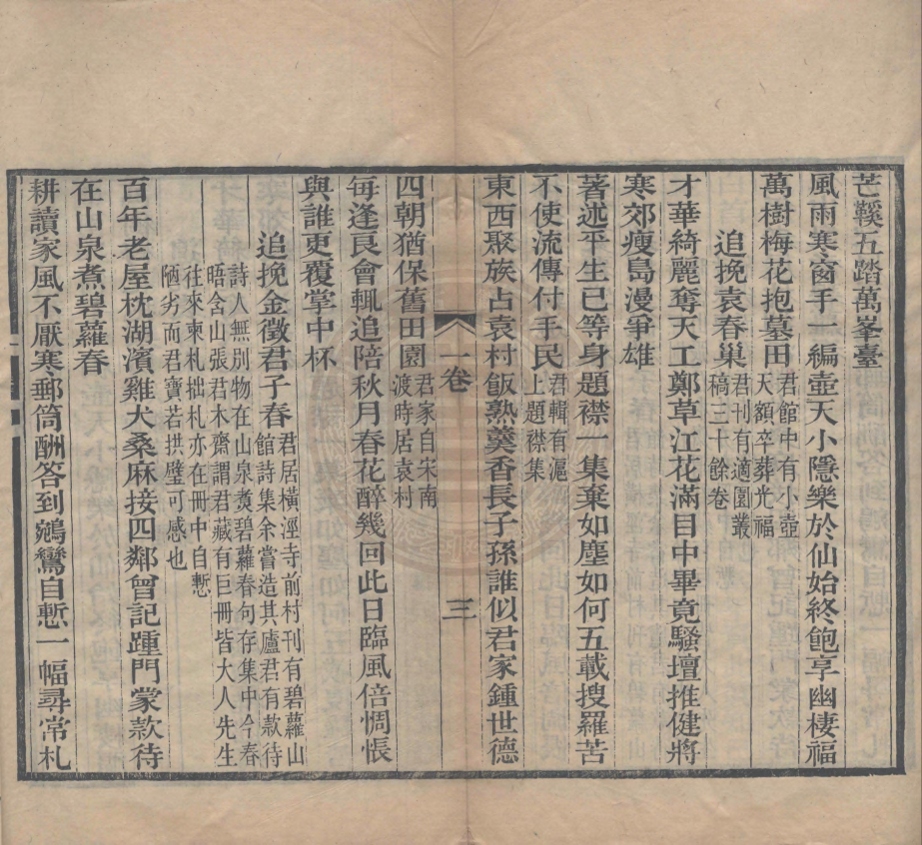 芒鞵五踏萬峯臺
風雨寒窗手一編壺天小隱樂於仙始終飽享幽棲福
萬樹梅花抱墓田君館中有小壺天額卒葬光福
追挽袁春巢君刊有適園叢稿三十餘卷
才華綺麗奪天工鄭草江花滿目中畢竟騷壇推健將
寒郊瘦島漫爭雄
著述平生已等身題襟一集棄如塵如何五載搜羅苦
不使流傳付手民君輯有滬上題襟集
東西聚族占袁村飯熟羹香長子孫誰似君家鍾世德
四朝猶保舊田園君家自宋南渡時居袁村
每逢良會輒追陪秋月春花醉幾回此日臨風倍惆悵
與誰更覆掌中杯
一卷 三
追挽金徵君子春君居橫涇寺前村刊有碧蘿山館詩集余嘗造其廬君有款待
詩人無別物在山泉煑碧蘿春句存集中今春晤含山張君木齋謂君藏有巨冊皆大人先生
往來柬札拙札亦在冊中自慙陋劣而君寶若拱璧可感也
百年老屋枕湖濱雞犬桑麻接四鄰曾記踵門蒙款待
在山泉煮碧蘿春
耕讀家風不厭寒郵筒酬答到鵷鸞自慙一幅尋常札